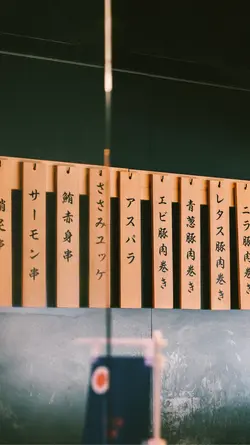 ニラ豚肉巻き
レタス豚肉巻き
青葱豚肉巻き
エビ豚肉巻き
アスパラ
ささみユッケ
鮪赤身串
サーモン串
足串